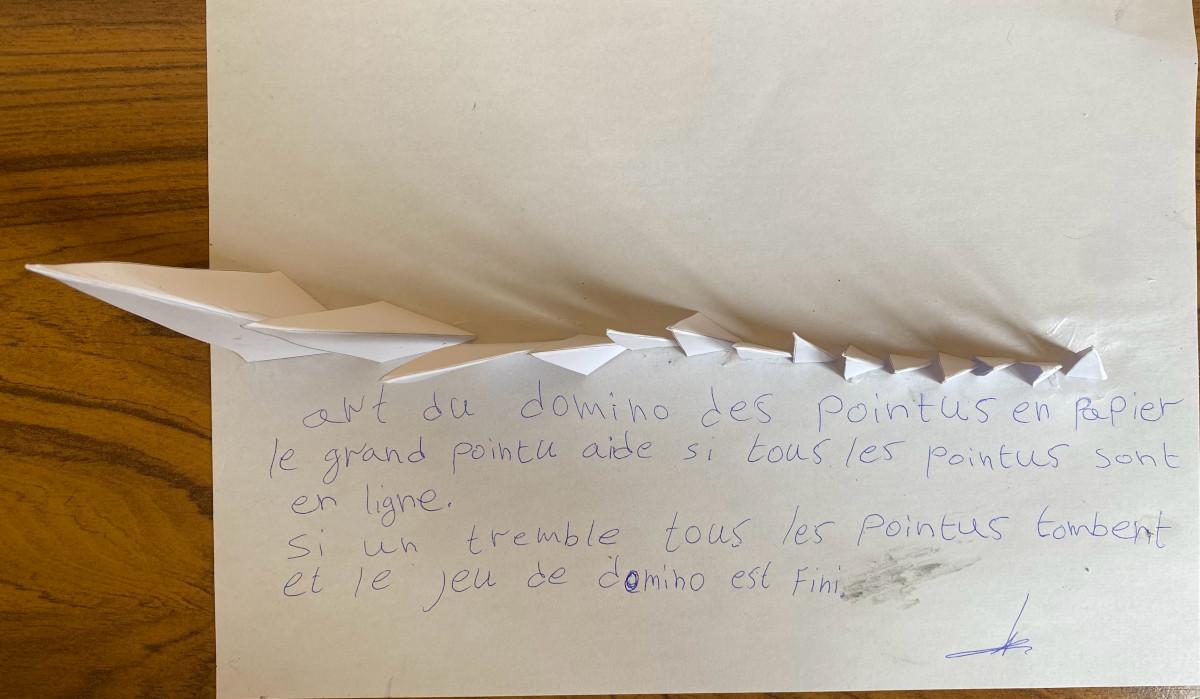 art du domino des pointus en papier
le grand pointu aide si tous les pointus sont
en ligne.
si un tremble tous les pointus tombent
et le jeu de domino est Fini.